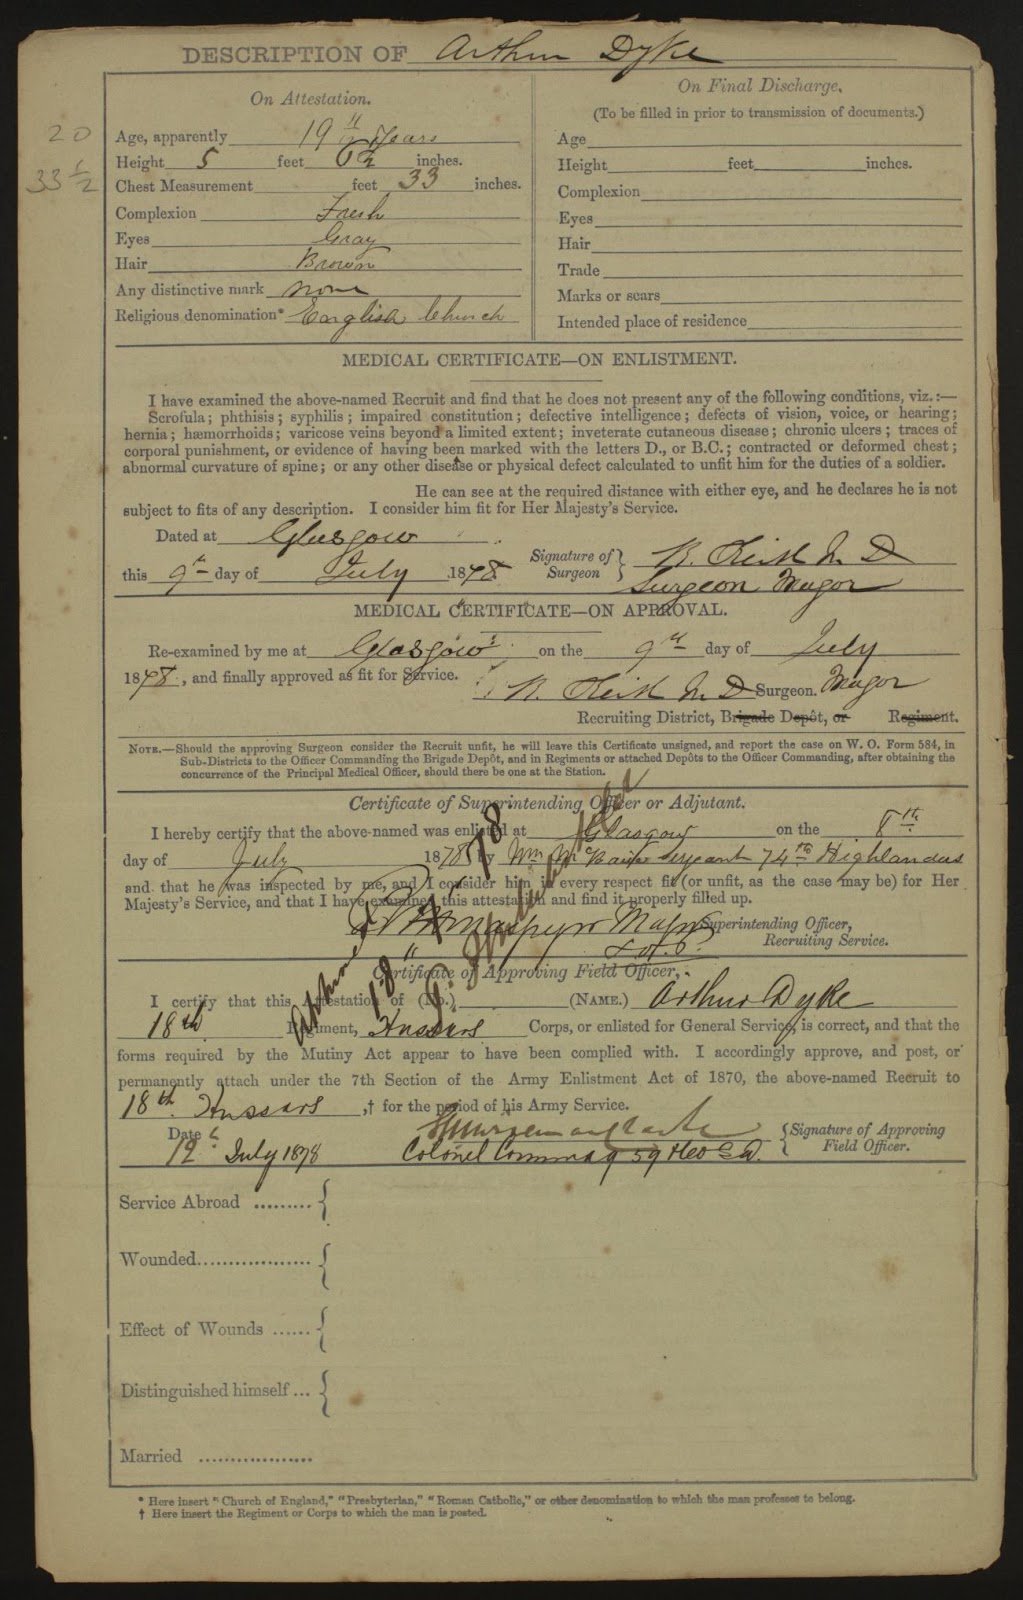 DESCRIPTION OF Arthur Dyke
On Attestation.
20
Age, apparently 19 11/12 Years
Height 5 feet 6 1/2 inches.
33 1/2
Chest Measurement feet 33 inches.
Complexion Fresh
Eyes Gray
Hair Brown
Any distinctive mark none
Religious denomination* English Church
On Final Discharge.
(To be filled in prior to transmission of documents.)
Age
Height feet inches.
Complexion
Eyes
Hair
Trade
Marks or scars
Intended place of residence
MEDICAL CERTIFICATE—ON ENLISTMENT.
I have examined the above-named Recruit and find that he does not present any of the following conditions, viz.:—
Scrofula; phthisis; syphilis; impaired constitution; defective intelligence; defects of vision, voice, or hearing;
hernia; hæmorrhoids; varicose veins beyond a limited extent; inveterate cutaneous disease; chronic ulcers; traces of
corporal punishment, or evidence of having been marked with the letters D., or B.C.; contracted or deformed chest;
abnormal curvature of spine; or any other disease or physical defect calculated to unfit him for the duties of a soldier.
He can see at the required distance with either eye, and he declares he is not
subject to fits of any description. I consider him fit for Her Majesty's Service.
Dated at Glasgow
this 9th day of July 1878.
Signature of Surgeon } M D
Surgeon Major
MEDICAL CERTIFICATE—ON APPROVAL.
Re-examined by me at Glasgow on the 9th day of July
1878, and finally approved as fit for Service.
M D Surgeon. Major
Recruiting District, Brigade Depôt, or Regiment.
NOTE.—Should the approving Surgeon consider the Recruit unfit, he will leave this Certificate unsigned, and report the case on W. O. Form 584, in
Sub-Districts to the Officer Commanding the Brigade Depôt, and in Regiments or attached Depôts to the Officer Commanding, after obtaining the
concurrence of the Principal Medical Officer, should there be one at the Station.
Certificate of Superintending Officer or Adjutant.
I hereby certify that the above-named was enlisted at Glasgow on the 8th
day of July 1878, by Wm Sergeant 74th Highlanders
and that he was inspected by me, and I consider him in every respect fit (or unfit, as the case may be) for Her
Majesty's Service, and that I have examined this attestation and find it properly filled up.
Major Superintending Officer,
Recruiting Service.
18 78
Certificate of Approving Field Officer.
I certify that this Attestation of (No.) (NAME.) Arthur Dyke
18th Regiment, Hussars Corps, or enlisted for General Service, is correct, and that the
forms required by the Mutiny Act appear to have been complied with. I accordingly approve, and post, or
permanently attach under the 7th Section of the Army Enlistment Act of 1870, the above-named Recruit to
18th Hussars ,† for the period of his Army Service.
Date 12 July 1878
Colonel
{ Signature of Approving
Field Officer.
Service Abroad ......... {
Wounded.................. {
Effect of Wounds ...... {
Distinguished himself ... {
Married ..................
* Here insert "Church of England," "Presbyterian," "Roman Catholic," or other denomination to which the man professes to belong.
† Here insert the Regiment or Corps to which the man is posted.